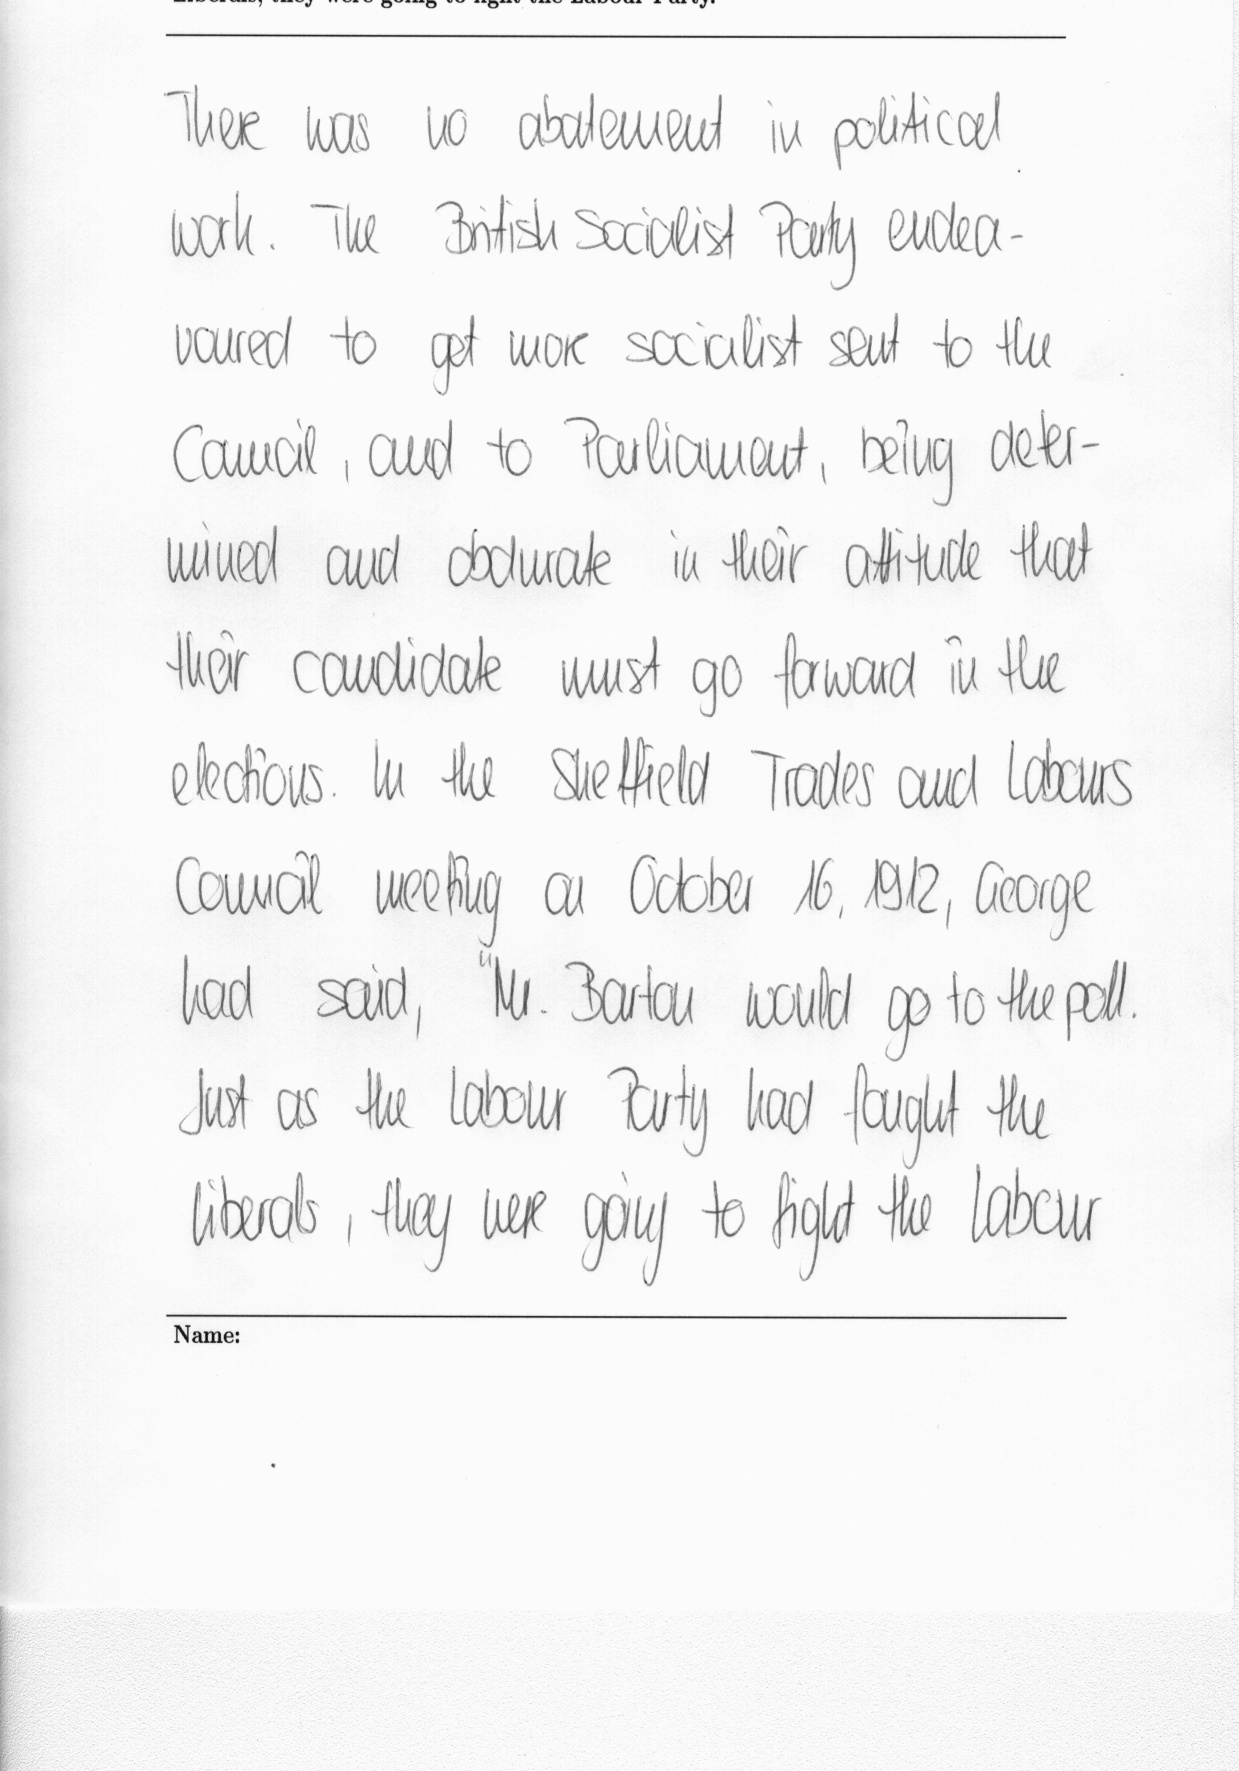 Liberals, they were going to fight the Labour Party.
There was no abatement in political
work. The British Socialist Party endea-
voured to get more socialist sent to the
Council, and to Parliament, being deter-
mined and obdurate in their attitude that
their candidate must go forward in the
elections. In the Sheffield Trades and Labours
Council meeting on October 16, 1912, George
had said, "Mr. Barton would go to the poll.
Just as the Labour Party had fought the
liberals, they were going to fight the Labour
Name: